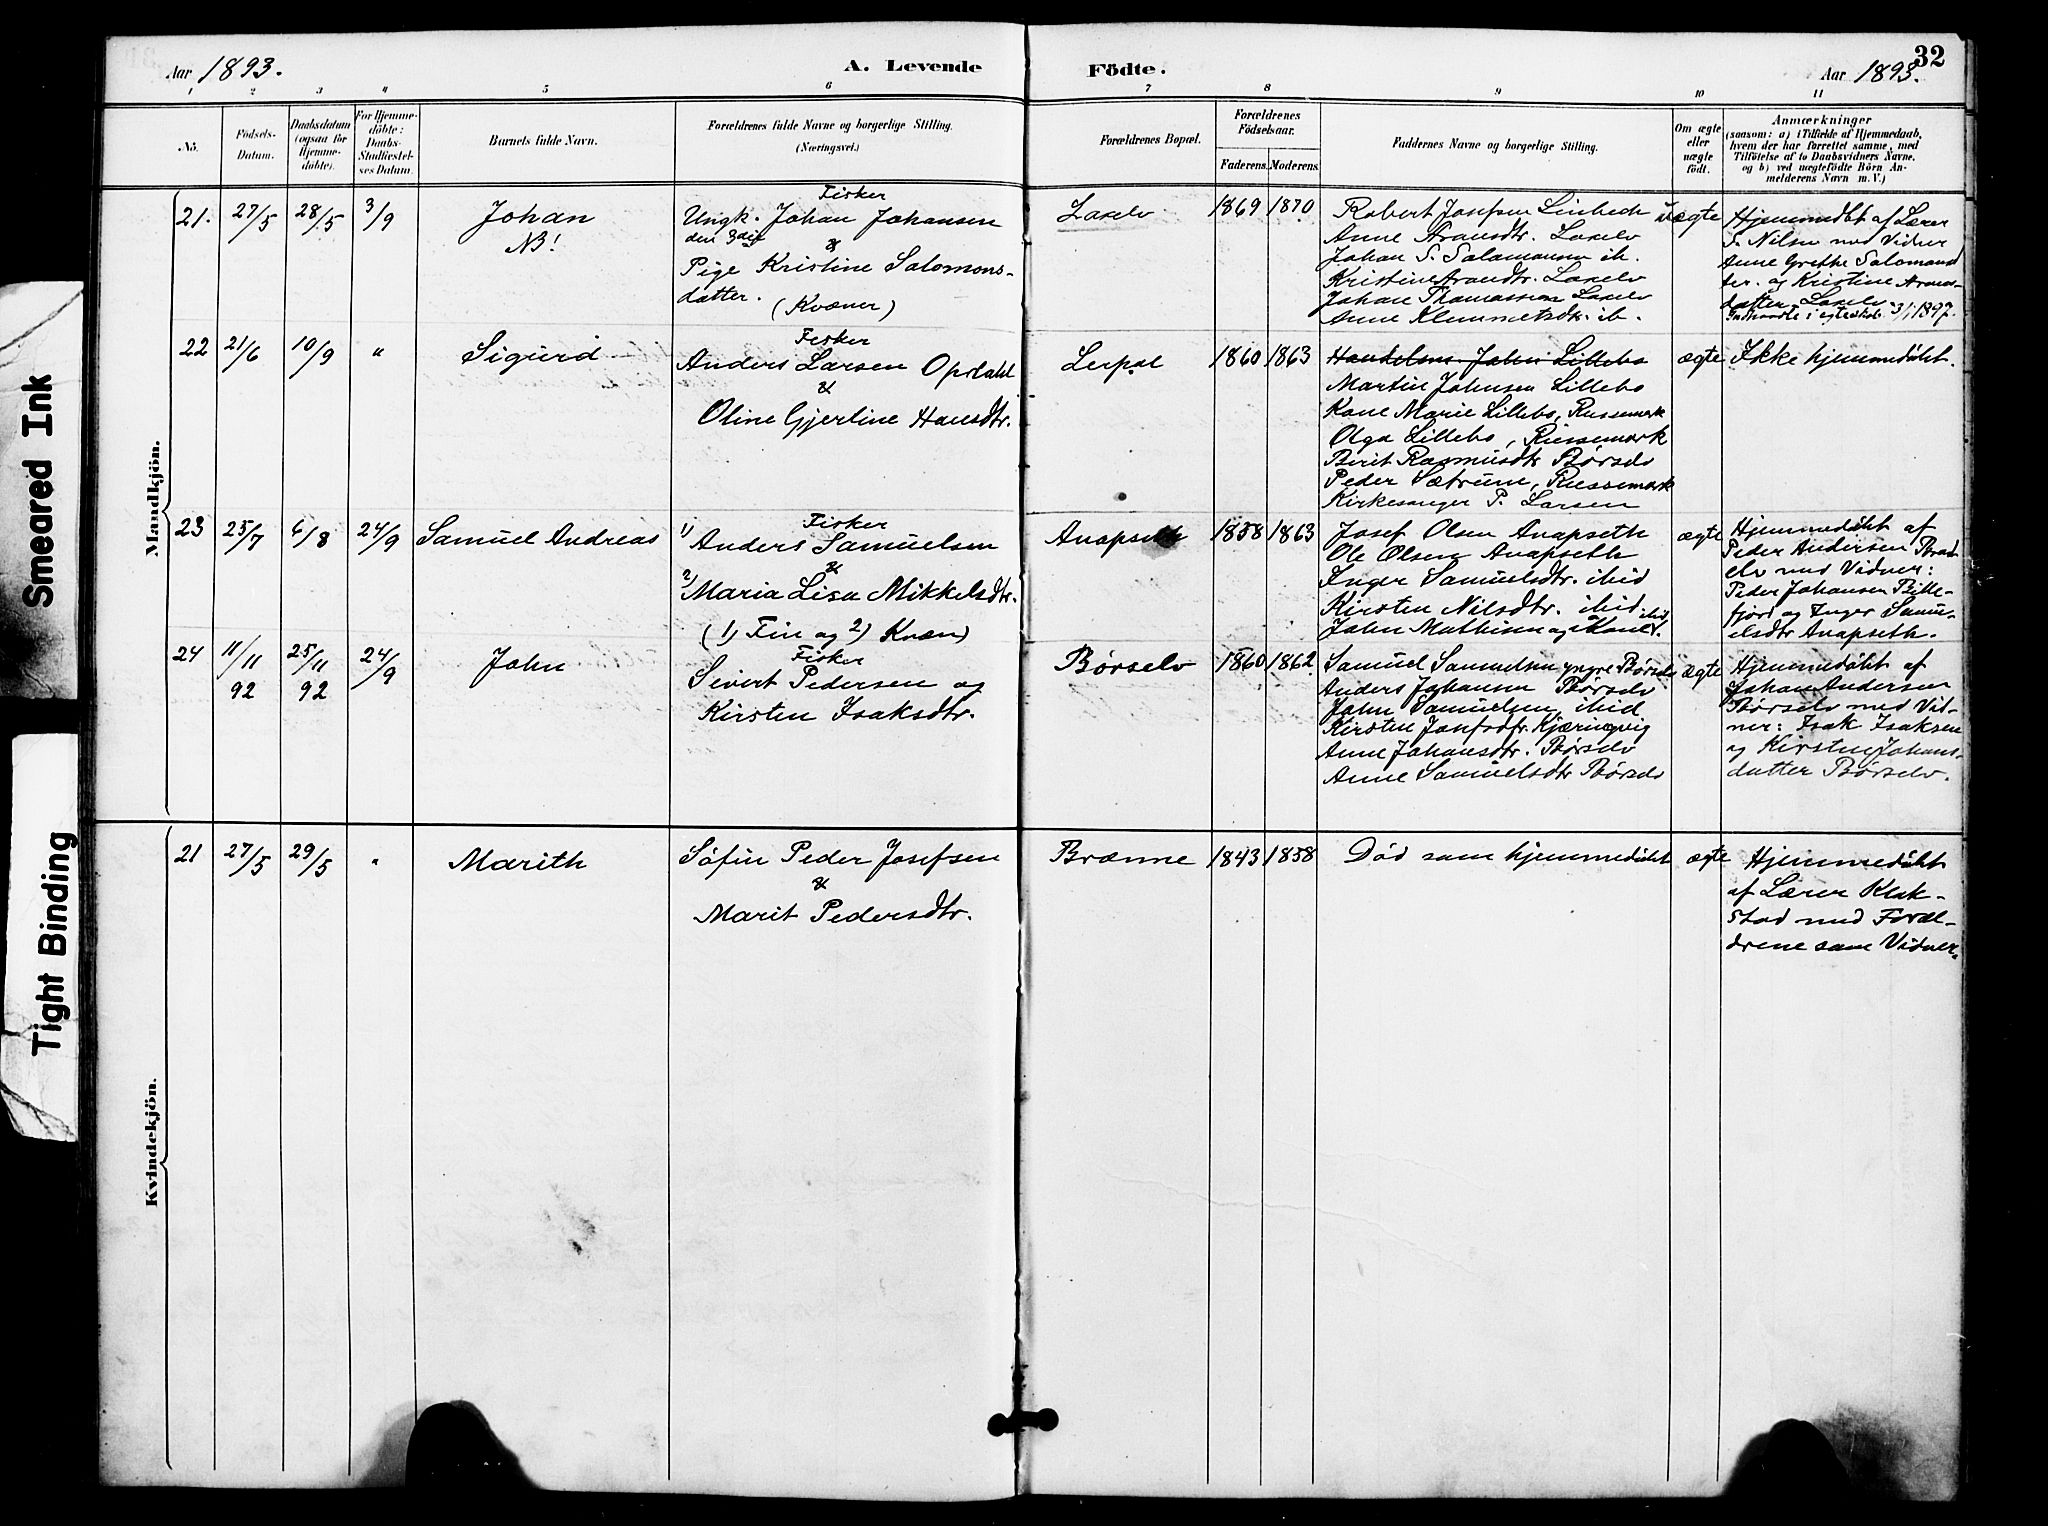 32
Aar 1893.
A. Levende Födte.
Aar 1893.
1 2 3 4 5 6 7 8 9 10 11
No.
Födsels-
Datum.
Daabsdatum
(ogsaa for
Hjemme-
döbte).
For Hjemme-
döbte:
Daabs-
Stadfæstel-
ses Datum.
Barnets fulde Navn.
Forældrenes fulde Navne og borgerlige Stilling.
(Næringsvei.)
Forældrenes Bopæl.
Forældrenes
Födselsaar.
Faderens. Moderens.
Faddernes Navne og borgerlige Stilling.
Om ægte
eller
uægte
födt.
Anmærkninger
(saasom: a) i Tilfælde af Hjemmedaab,
hvem der har forrettet samme, med
Tilföielse af to Daabsvidners Navne,
og b) ved uægtefödte Börn An-
melderens Navn m. V.)
Mandkjön.
21. 27/5 28/5 3/9
Johan
NB!
Fisker
Ungk. Johan Johansen
&
Pige Kristine Salomons-
datter.
(Kvæner)
Laxelv
1869 1870
Robert Josefsen Linbech
Anne Aronsdtr. Laxelv
Johan S. Salamonsen ib.
Kristine Arondtr. Laxelv
Johan Thomassen Laxelv
Anne Klemmetsdtr. ib.
uægte
Hjemmedøbt af Lærer
Nilsen med Vidner
Anne Grethe Salomonsd
ter. og Kristine Arons-
datter Laxelv
22 21/6 10/9 "
Sigurd
Fisker
Anders Larsen Opdahl
&
Oline Gjertine Hansdtr.
Leirpol
1860 1863
Handelsm. John Lillebo
Martin Johnsen Lillebo
Kone Marie Lillebo, Russemark
Olga Lillebo, Russemark
Berit Rasmusdtr Børselv
Peder Sætrum, Russemark
Kirkesanger P. Larsen
ægte
Ikke hjemmedøbt.
23 25/7 6/8 24/9
Samuel Andreas
Fisker
1) Anders Samuelsen
&
2) Maria Lisa Mikkelsdtr.
(1) Fin og 2) Kvæn)
Anapseth
1858 1863
Josef Olsen Anapseth
Ole Olsen Anapseth
Inger Samuelsdtr. ibid
Kirsten Nilsdtr. ibid
John Mathisen og Kone ibid.
ægte
Hjemmedøbt af
Peder Andersen Brad
elv med Vidner:
Peder Johansen Bille-
fjord og Inger Samu-
elsdtr Anapseth.
24 11/11 92 25/11 92 24/9
John
Fisker
Sivert Pedersen og
Kirsten Isaksdtr.
Børselv
1860 1862
Samuel Samuelsen yngre Børselv
Anders Johansen Børselv
John Samuelsen ibid
Kirsten Josefsdtr. Kjæringvig
Anne Johansdtr. Børselv
Anne Samuelsdtr Børselv
ægte
Hjemmedøbt af
Johan Andersen
Børselv med Vid-
ner: Isak Isaksen
og Kirsten Johans-
datter Børselv.
Kvindekjön.
21 27/5 29/5 "
Marith
Søfin Peder Josefsen
&
Marit Pedersdtr.
Brænne
1843 1858
Død som hjemmedøbt
ægte
Hjemmedøbt
af Lærer Klak-
stad med Foræl-
drene som Vidner.
Smeared Ink
Tight Binding